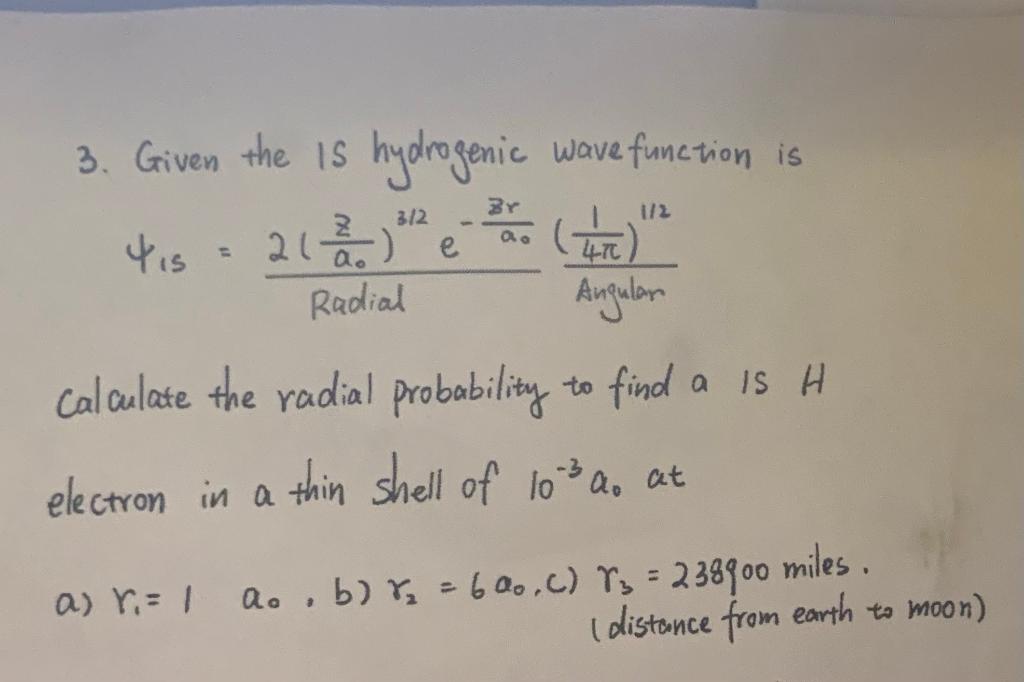 3. Given the 1S hydrogenic wavefunction is
Ψ1s = 2(Z/a₀)^3/2 e^-Zr/a₀ (1/4π)^1/2
Radial Angular
Calculate the radial probability to find a 1S H
electron in a thin shell of 10⁻³ a₀ at
a) r₁ = 1 a₀, b) r₂ = 6 a₀, c) r₃ = 238900 miles.
(distance from earth to moon)